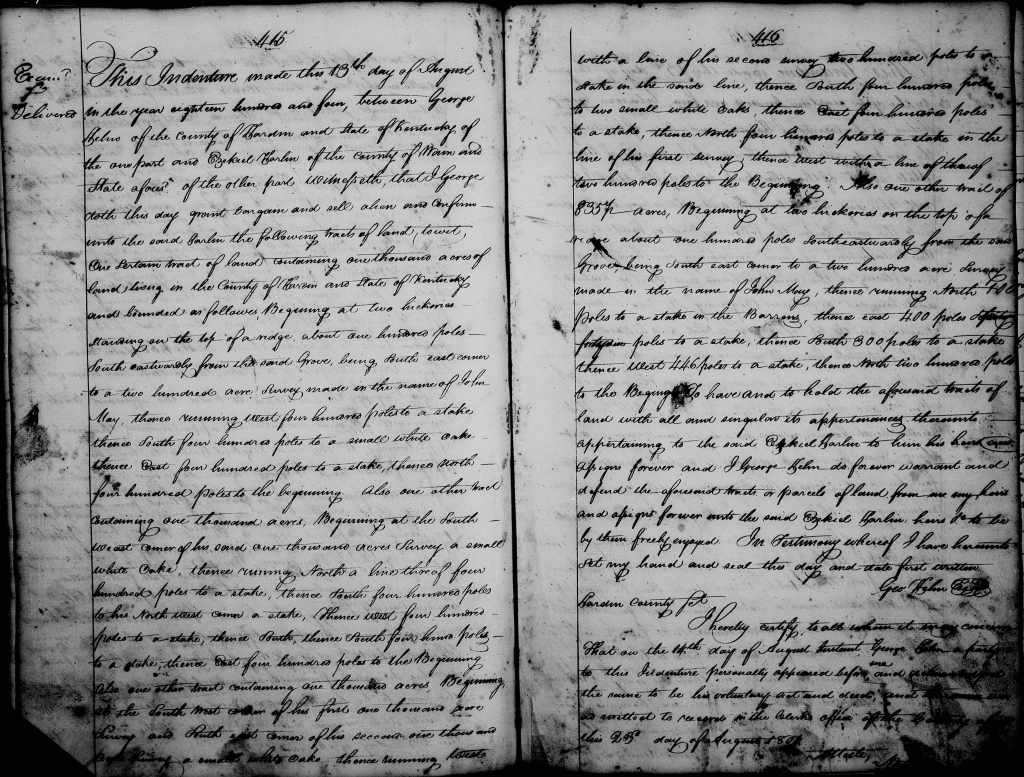 415
Exam.d
&
Delivered
This Indenture made this 13th day of August
in the year eighteen hundred and four, between George
Helm of the County of Hardin and State of Kentucky, of
the one part and Ezekiel Harlin of the County of and
State afores.d of the other part Witnesseth, that I George
doth this day grant bargain and sell alien and Confirm
unto the said Harlin the following tracts of land, towit,
One Certain tract of land containing one thousand acres of
land lying in the County of Hardin and State of Kentucky
and bounded as follows Begining at two hickories
standing on the top of a ridge about one hundred poles
South eastwardly from the said Grove, being South east corner
to a two hundred acre Survey made in the name of John
May, thence running West four hundred poles to a stake
thence South four hundred poles to a small white oake
thence East four hundred poles to a stake, thence North
four hundred poles to the beginning Also one other tract
containing one thousand acres, Beginning at the South
West corner of his said one thousand acres Survey a small
white Oake, thence runing North a line thereof four
hundred poles to a stake, thence South four hundred poles
to his North West corner a stake, thence West four hundred
poles to a stake, thence South, thence South four hund. poles
to a stake, thence East four hundred poles to the Beginning
Also one other tract containing one thousand acres Beginning
at the South West corner of his first one thousand acre
Survey and South east corner of his second one thousand
a small white Oake thence running West
416
with a line of his second survey two hundred poles to a
stake in the said line, thence South four hundred poles
to two small white Oaks, thence East four hundred poles
to a stake, thence North four hundred poles to a stake in the
line of his first survey, thence West with a line thereof
two hundred poles to the Beginning. Also one other tract of
835 acres, Beginning at two hickories on the top of a
ridge about one hundred poles Southeastwardly from the said
Grove being South east corner to a two hundred acre Survey
made in the name of John May, thence running North 100
poles to a stake in the Barrens, thence east 400 poles
poles to a stake, thence South 300 poles to a stake
thence West 446 poles to a stake, thence North two hundred poles
to the Begining To have and to hold the aforesaid tracts of
land with all and singular its appertenances thereunto
appertaining to the said Ezekiel Harlin to him his heirs and
assigns forever and I George Helm do forever warrant and
defend the aforesaid tracts or parcels of land from me my heirs
and assigns forever unto the said Ezekiel Harlin heirs &c to be
by them freely enjoyed In Testimony whereof I have hereunto
Set my hand and seal the day and date first written
Geo Helm Seal
Hardin County Sct
I hereby certify, to all whom it may concern
That on the 14th day of August Instant, George Helm a party
to this Indenture personally appeared before me and acknowledged
the same to be his voluntary act and deed, and the same was
admitted to record in the Clerks office of the County
this 23d day of August 180
Atteste,